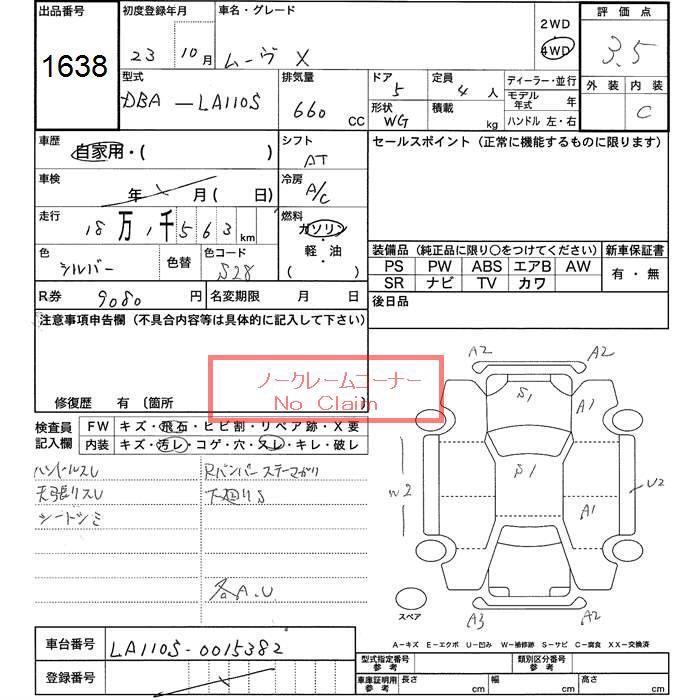 出品番号 初度登録年月 車名・グレード 2WD 評価点
1638 23 10月 ムーヴ X 4WD 3.5
型式 排気量 ドア 定員 ディーラー・並行 外装 内装
DBA-LA110S 660 CC 5 4人 モデル年式 年 C
形状 積載 ハンドル 左・右
WG kg
車歴 自家用・( ) シフト AT セールスポイント(正常に機能するものに限ります)
車検 年 月 ( 日) 冷房 A/C
走行 18万1千563km 燃料 ガソリン・軽油 ( )
色 シルバー 色替 色コード S28 装備品(純正品に限り○をつけてください) 新車保証書
PS PW ABS エアB AW 有・無
SR ナビ TV カワ
R券 9080円 名変期限 月 日 後日品
注意事項申告欄(不具合内容等は具体的に記入して下さい)
ノークレームコーナー
No Claim
修復歴 有 (箇所 )
検査員記入欄 FW キズ・飛石・ヒビ割・リペア跡・X要
内装 キズ・汚レ・コゲ・穴・スレ・キレ・破レ
ハンドルスレ Rバンパーステーマガリ
天張りスレ 下廻りS
シートシミ
各A.U
A2 A2
S1 A1
W2 S1 U2
A1
A3 A2
スペア
A-キズ E-エクボ U-凹み W-補修跡 S-サビ C-腐食 XX-交換済
車台番号 LA110S-0015382
登録番号
型式指定番号 参考 類別区分番号 参考
車庫証明用 参考 長さ cm 幅 cm 高さ cm